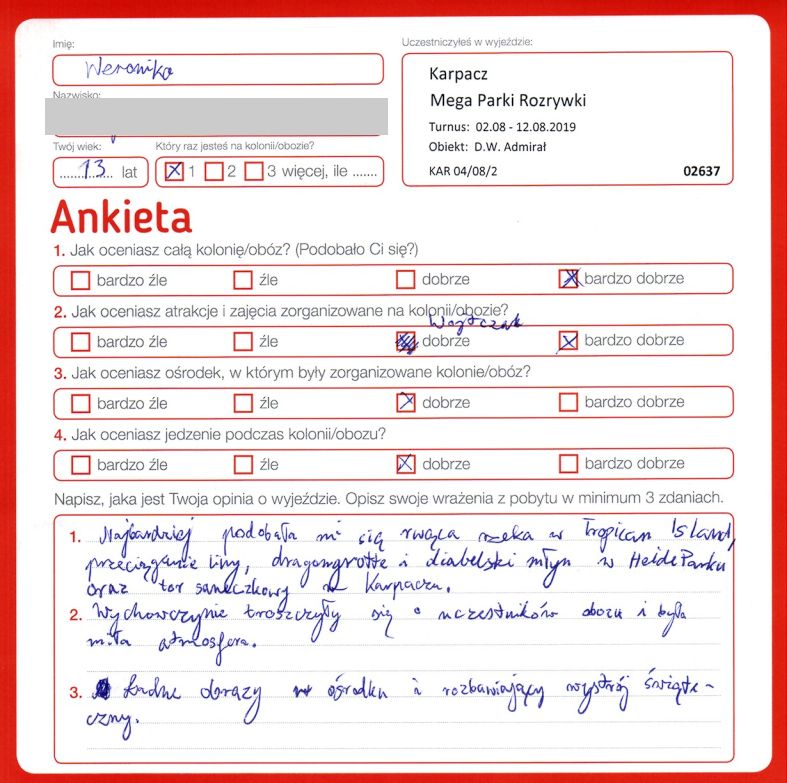 Imię:
Weronika
Nazwisko:
Uczestniczyłeś w wyjeździe:
Karpacz
Mega Parki Rozrywki
Turnus: 02.08 - 12.08.2019
Obiekt: D.W. Admirał
KAR 04/08/2 02637
Twój wiek:
13 lat
Który raz jesteś na kolonii/obozie?
1 2 3 więcej, ile .......
Ankieta
1. Jak oceniasz całą kolonię/obóz? (Podobało Ci się?)
bardzo źle źle dobrze bardzo dobrze
2. Jak oceniasz atrakcje i zajęcia zorganizowane na kolonii/obozie?
Wojtczak
bardzo źle źle dobrze bardzo dobrze
3. Jak oceniasz ośrodek, w którym były zorganizowane kolonie/obóz?
bardzo źle źle dobrze bardzo dobrze
4. Jak oceniasz jedzenie podczas kolonii/obozu?
bardzo źle źle dobrze bardzo dobrze
Napisz, jaka jest Twoja opinia o wyjeździe. Opisz swoje wrażenia z pobytu w minimum 3 zdaniach.
1. Najbardziej podobała mi się rwąca rzeka w Tropican Island,
przeciąganie liny, dragongrotte i diabelski młyn w HeidePanku
oraz tor saneczkowy w Karpaczu.
2. Wychowczynie troszczyły się o uczestników obozu i była
miła atmosfera.
3. Ładne obrazy w ośrodku i rozbawiający wystrój święte-
czny.